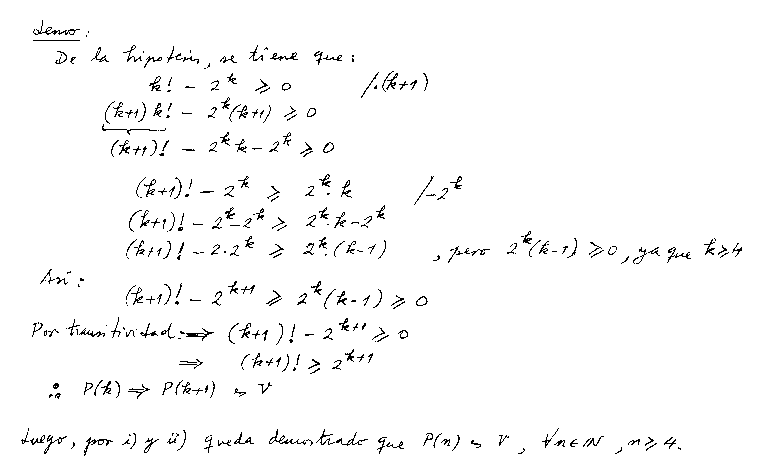 Demo:
De la hipotesis, se tiene que:
k! - 2^k ≥ 0 /·(k+1)
(k+1) k! - 2^k (k+1) ≥ 0
(k+1)! - 2^k k - 2^k ≥ 0
(k+1)! - 2^k ≥ 2^k · k /-2^k
(k+1)! - 2^k - 2^k ≥ 2^k · k - 2^k
(k+1)! - 2·2^k ≥ 2^k · (k-1) , pero 2^k (k-1) ≥ 0, ya que k ≥ 4
Así:
(k+1)! - 2^{k+1} ≥ 2^k (k-1) ≥ 0
Por transitividad: ⇒ (k+1)! - 2^{k+1} ≥ 0
⇒ (k+1)! ≥ 2^{k+1}
∴ P(k) ⇒ P(k+1) es V
Luego, por i) y ii) queda demostrado que P(n) es V, ∀n∈ℕ, n ≥ 4.